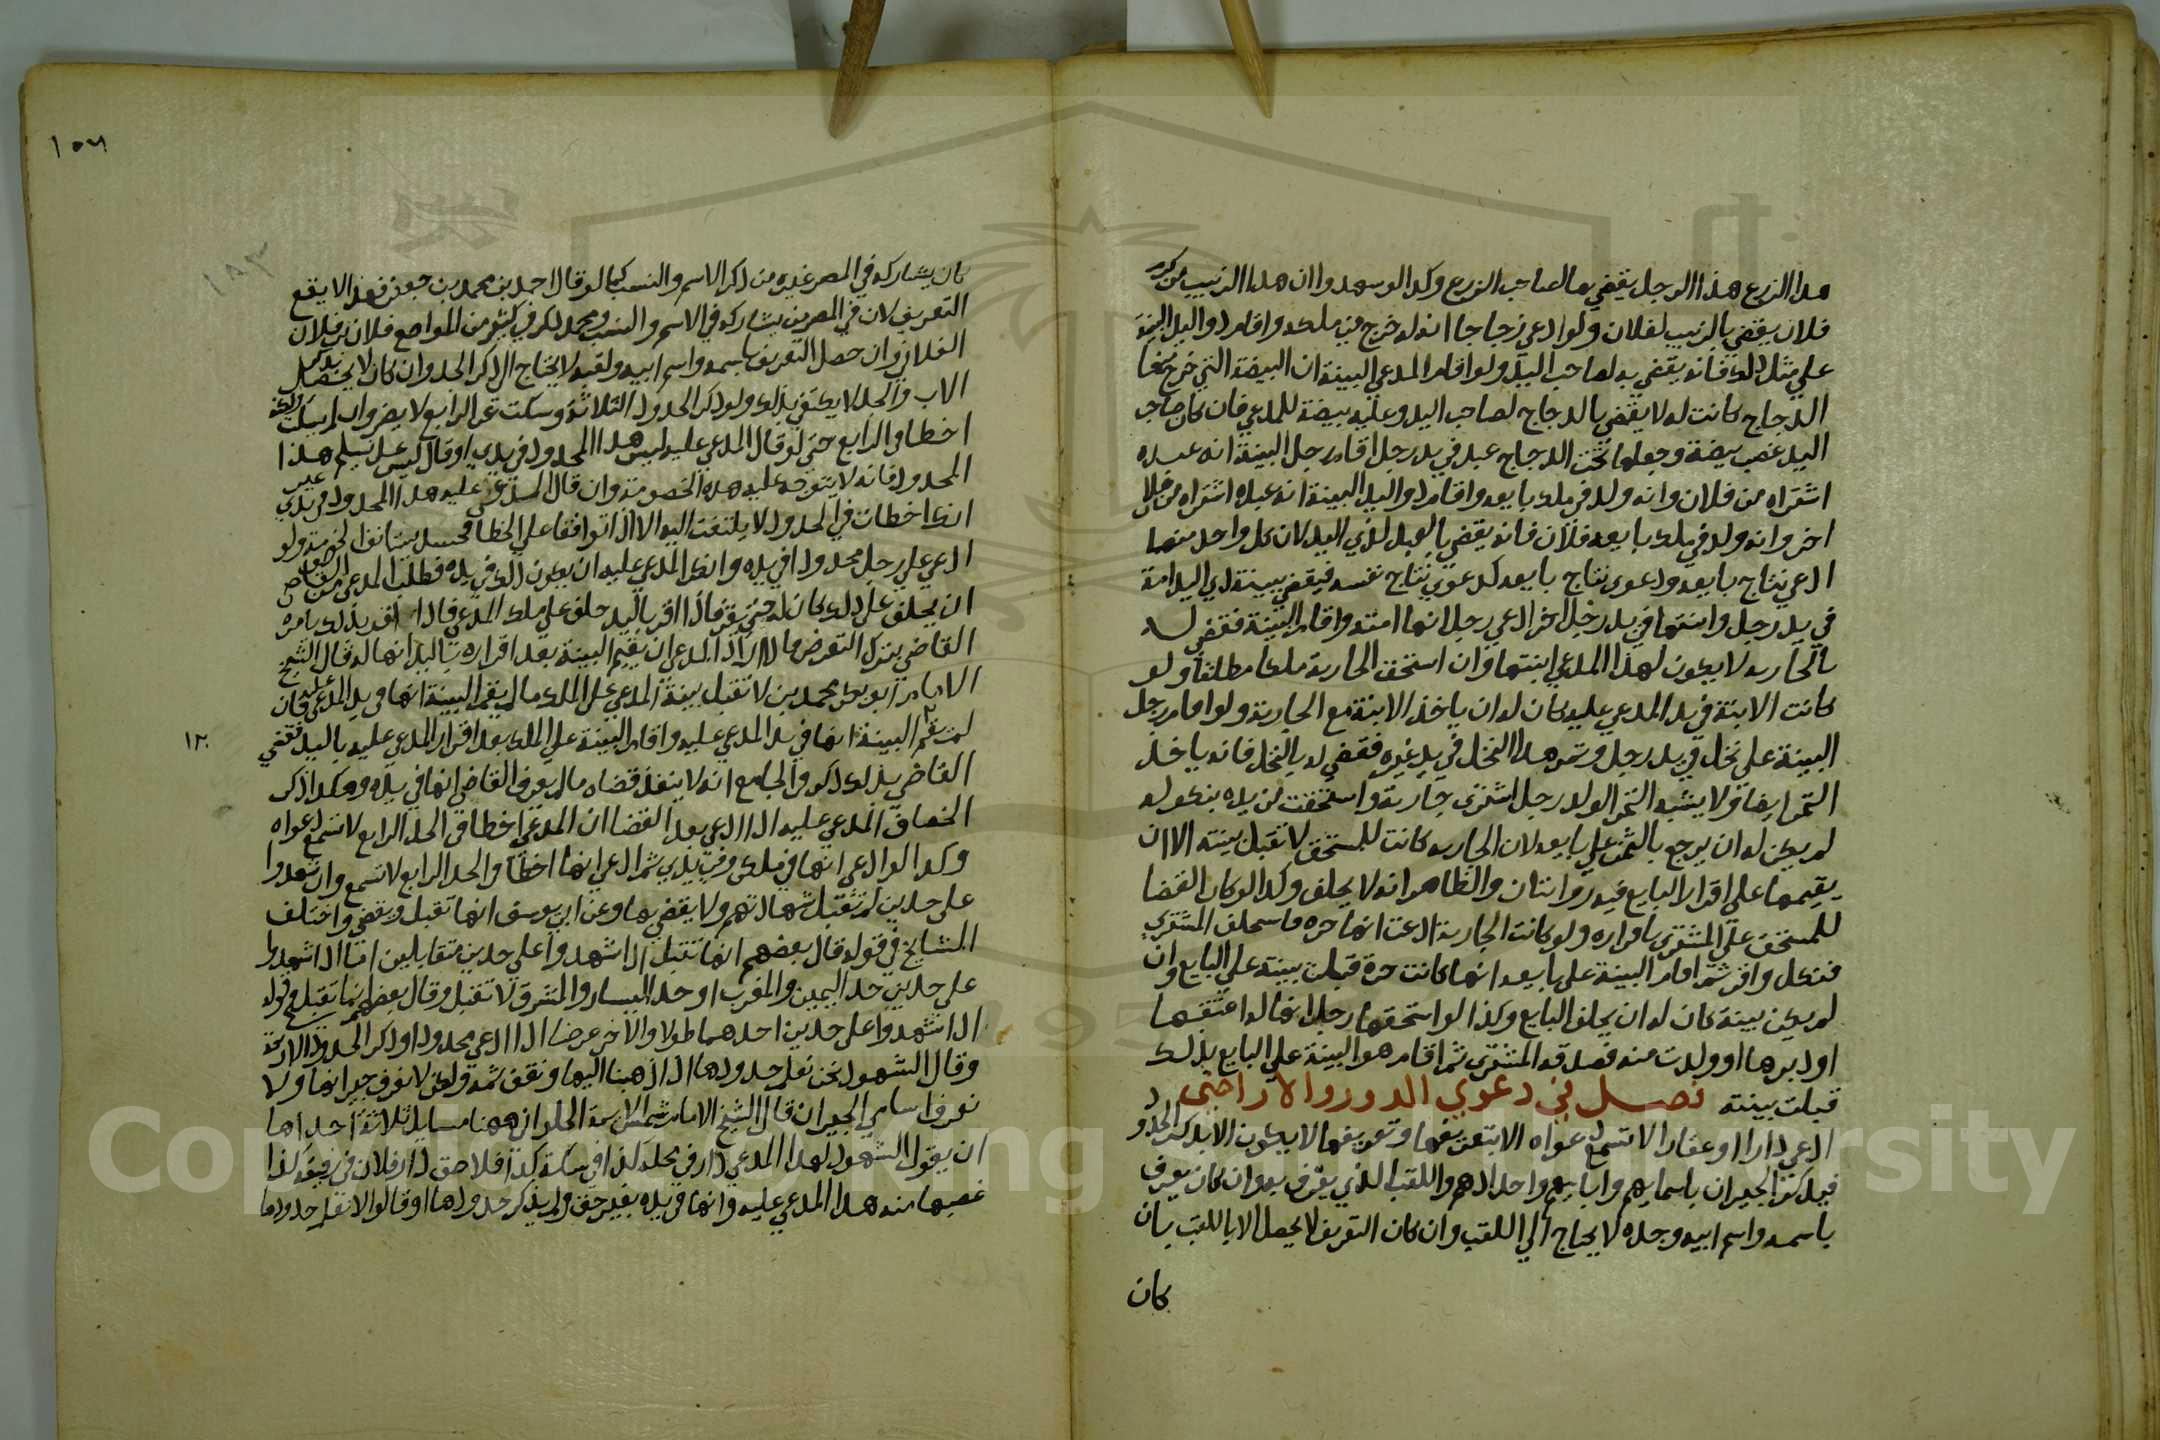 هذا الزرع هذا الرجل يقضي بها لصاحب الزرع وكذا لو شهدوا ان هذا الزبيب من كرم
فلان يقضي بالزبيب لفلان ولو ادعي زجاجا انه له خرج من ملكه واقام ذو اليد البينة
علي مثل ذلك فانه يقضي به لصاحب اليد ولو اقام المدعي البينة ان البيضة التي خرج منها
الدجاج كانت له لا يقضي بالدجاج لصاحب اليد وعليه بيضة للمدعي فان كان صاحب
اليد غصب بيضة وجعلها تحت الدجاج عبد في يد رجل اقام رجل البينة انه عبده
اشتراه من فلان وانه ولد في ملك بايعه واقام ذو اليد البينة انه عبده اشتراه من فلان
اخر وانه ولد في ملك بايعه فلان فانه يقضي بالعبد لذي اليد لان كل واحد منهما
ادعي نتاج بايعه ودعوي نتاج بايعه كدعوي نتاج نفسه فيقضي ببينة ذي اليد امة
في يد رجل وابنتها في يد رجل اخر ادعي رجل انها امته واقام البينة فقضي له
بالجارية لا يكون لهذا المدعي ابنتها وان استحق الجارية ملكا مطلقا ولو
كانت الابنة في يد المدعي عليه كان له ان ياخذ الابنة مع الجارية ولو اقام رجل
البينة علي نخل في يد رجل وتمر هذا النخل في يد غيره فقضي له بالنخل فانه ياخذ
التمر ايضا ولا يشبه التمر الولد رجل اشتري جارية واستحقت من يده بنكوله
لم يكن له ان يرجع بالثمن علي بايعه لان الجارية كانت للمستحق لا تقبل بينته الا ان
يقيمها علي اقرار البايع فيه روايتان والظاهر انه لا يحلف وكذا لو كان القضا
للمستحق علي المشتري باقراره ولو كانت الجارية ادعت انها حره فاستحلف المشتري
فنكل واقر ثم اقام البينة علي بايعه انها كانت حرة قبلت بينته علي البايع وان
لم يكن بينة كان له ان يحلف البايع وكذا لو استحقها رجل انها له اعتقها
او دبرها او ولدت منه فصدقه المشتري ثم اقام هو البينة علي البايع بذلك
قبلت بينته فصل في دعوي الدور والاراضي
ادعي دارا او عقارا لا تسمع دعواه الا بتعريفها وتعريفها لا يكون الا بذكر الحدود
فيذكر الجيران باسمايهم وابايهم واجدادهم واللقب الذي يعرف به وان كان يعرف
باسمه واسم ابيه وجده لا يحتاج الي اللقب وان كان التعريف لا يحصل الا باللقب بان
كان
١٥٦
١٨٣
كان يشاركه في المصر غيره من ذكر الاسم والنسب كما لو قال احمد بن محمد بن جعفر فهذا لا يقع
التعريف لان في المصر من يشاركه في الاسم والنسب ومحمد ذكر في كثير من المواضع فلان بن فلان
الفلاني وان حصل التعريف باسمه واسم ابيه ولقبه لا يحتاج الي ذكر الجد وان كان لا يحصل بذكر
الاب والجد لا يكتفي بذلك ولو ذكر الحدود الثلاثة وسكت عن الرابع لا يضر وان لم يسكت ولكنه
اخطا في الرابع حتي لو قال المدعي عليه ليس هذا المحدود في يدي او قال ليس علي تسليم هذا
المحدود فانه لا يتوجه عليه هذه الخصومة وان قال المدعي عليه هذا المحدود في يدي غير
انك اخطات في الحدود لا يلتفت اليه الا اذا توافقا علي الخطا فحينئذ يستانف الخصومة ولو
ادعي علي رجل محدودا في يده وانكر المدعي عليه ان يكون ذلك في يده فطلب المدعي من القاضي
ان يحلفه علي ذلك كان له حتي يقر فاذا اقر باليد حلف علي ملك المدعي فاذا اقر بذلك يامره
القاضي بترك التعرض فاذا اراد المدعي ان يقيم البينة بعد اقراره باليد انها له قال الشيخ
الامام ابو بكر محمد بن لا تقبل بينة المدعي علي الملك ما لم يقم البينة انها في يد المدعي عليه فان
لم يقم البينة انها في يد المدعي عليه واقام البينة علي الملك بعد اقرار المدعي عليه باليد فقضي
١٢
القاضي بذلك ذكر في الجامع انه لا ينفذ قضاه ما لم يعرف القاضي انها في يده وهكذا ذكر
الخصاف المدعي عليه اذا ادعي بعد القضا ان المدعي اخطا في الحد الرابع لا تسمع دعواه
وكذا لو ادعي انها في ملكي وفي يدي ثم ادعي انها اخطا في الحد الرابع لا تسمع وان شهدوا
علي حدين لم تقبل شهادتهم ولا يقضي بها وعن ابي يوسف انها تقبل ويقضي واختلف
المشايخ في قوله قال بعضهم انها تقبل اذا شهدوا علي حدين متقابلين اما اذا شهدوا
علي حدين حد اليمين والمغرب او حد اليسار والمشرق لا تقبل وقال بعضهم انما تقبل في قوله
اذا شهدوا علي حدين احدهما طولا والاخر عرضا اذا ادعي محدودا وذكر الحدود الاربعة
وقال الشهود نحن نعلم حدودها اذا ذهبنا اليها ونقف ثمه ولكن لا نعرف جيرانها ولا
نعرف اسامي الجيران قال الشيخ الامام شمس الايمة الحلواني ههنا مسايل ثلاثة احداها
ان يقول الشهود لهذا المدعي دار في محلة كذا في سكة كذا تلاصق دار فلان في زقيق كذا
غصبها منه هذا المدعي عليه وانها في يده بغير حق ولم يذكر حدودها او قالوا لا نعلم حدودها
Copyright © King Saud University
1957